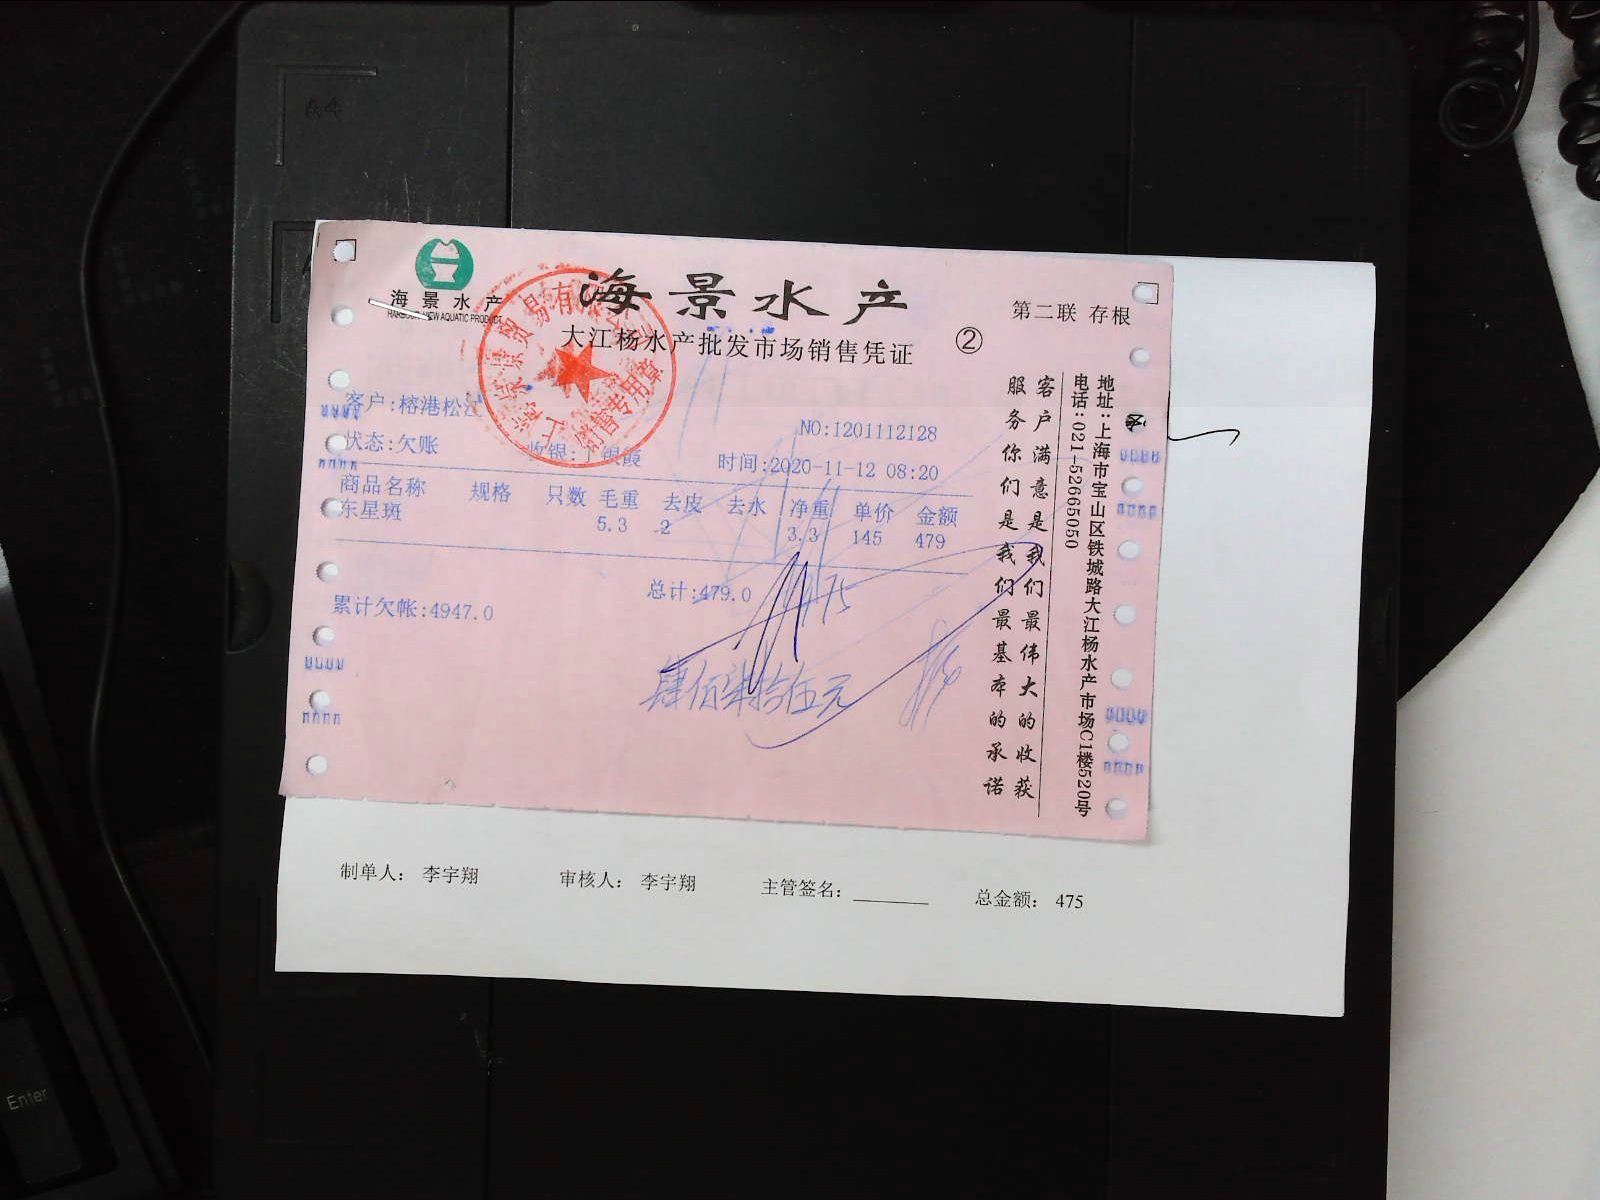 A4
海景水产
HARBOUR VIEW AQUATIC PRODUCT
海景水产
大江杨水产批发市场销售凭证
②
第二联 存根
客户:榕港松江
NO:1201112128
状态:欠账
收银:丁银霞
时间:2020-11-12 08:20
商品名称 规格 只数 毛重 去皮 去水 净重 单价 金额
东星斑 5.3 .2 3.3 145 479
总计:479.0
累计欠帐:4947.0
475
肆佰柒拾伍元
客户满意是我们最伟大的收获
服务你们是我们最基本的承诺
地址:上海市宝山区铁城路大江杨水产市场C1楼520号
电话:021-52665050
制单人: 李宇翔 审核人: 李宇翔 主管签名: 总金额: 475
Enter